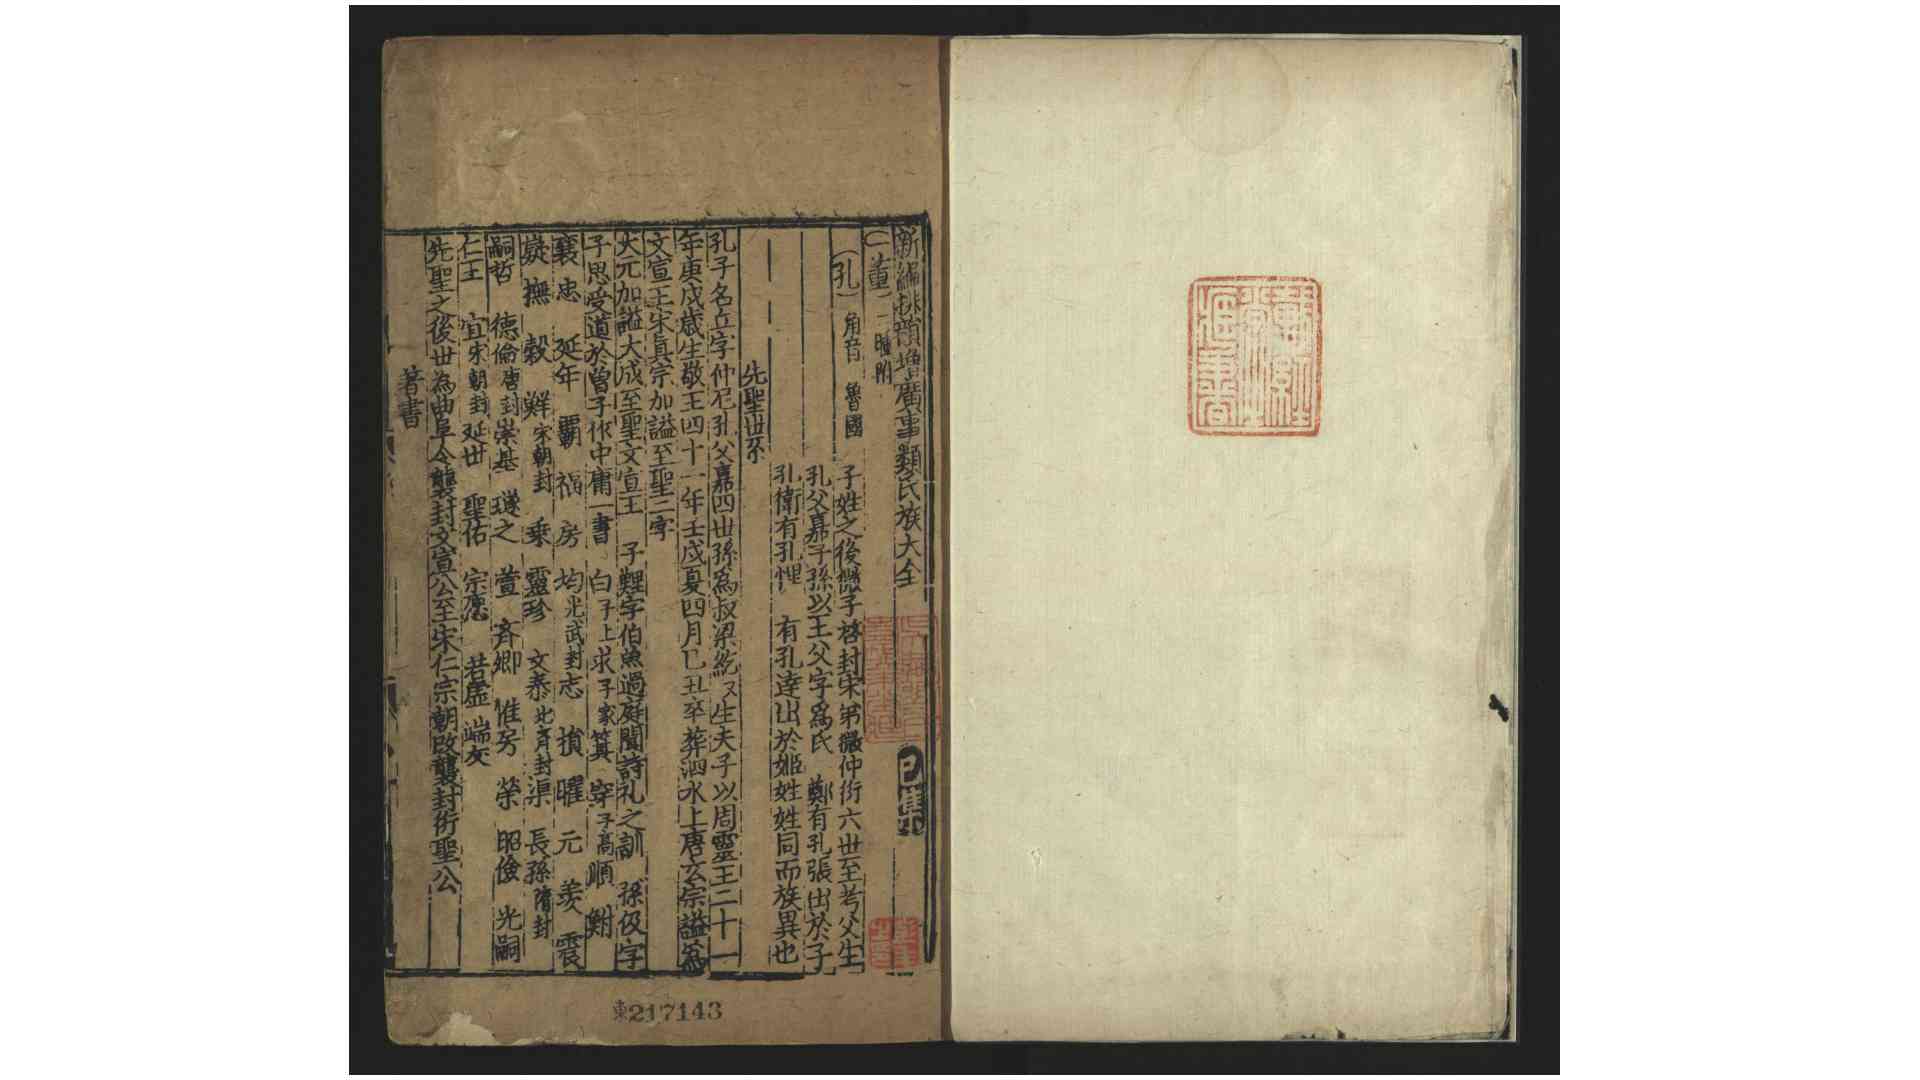 新編排韻增廣事類氏族大全 巳集
一董 二腫附
孔 角音 魯國 子姓之後微子啓封宋弟微仲衍六世至考父生
孔父嘉子孫以王父字爲氏 鄭有孔張出於子
孔衛有孔悝 有孔達出於姬姓姓同而族異也
先聖世系
孔子名丘字仲尼孔父嘉四世孫爲叔梁紇又生夫子以周靈王二十一
年庚戌歲生敬王四十一年壬戌夏四月己丑卒葬泗水上唐玄宗謚爲
文宣王宋眞宗加謚至聖二字
大元加謚大成至聖文宣王 子鯉字伯魚過庭聞詩礼之訓 孫伋字
子思受道於曾子作中庸一書 白子上 求子家 箕 穿子高 順 鮒
襄 忠 延年 覇 福 房 均光武封 志 損 曜 元 羨 震
嶷 撫 毅 鮮宋朝封 乗 靈珍 文泰北齊封 渠 長孫隋封
嗣哲 德倫唐封 崇基 璲之 萱 齊卿 惟昉 榮 昭儉 光嗣
仁王 宜宋朝封 延世 聖佑 宗愿 若虛 端友
先聖之後世為曲阜令襲封文宣公至宋仁宗朝改襲封衍聖公
著書
東217143